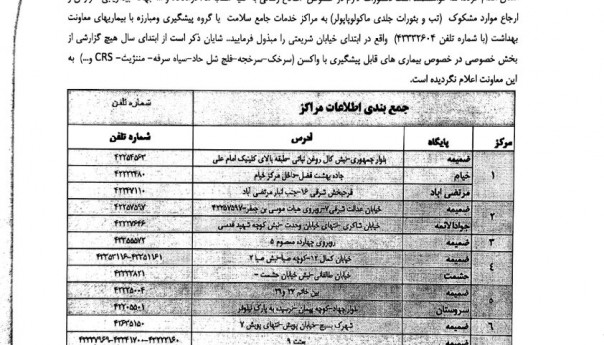 ارجاع موارد مشکوک (تب و بثورات جلدی ماکولوپاپولر) به مراکز خدمات جامع سلامت یا گروه پیشگیری ومبارزه با بیماریهای معاونت
بهداشت (با شماره تلفن ۴۳۳۳۲۶۰۴) واقع در ابتدای خیابان شریعتی را مبذول فرمایید. شایان ذکر است از ابتدای سال هیچ گزارشی از
بخش خصوصی در خصوص بیماری های قابل پیشگیری با واکسن (سرخک-سرخجه-فلج شل حاد-سیاه سرفه- مننژیت- CRS و...) به
این معاونت اعلام نگردیده است.
جمع بندی اطلاعات مراکز شماره تلفن
مرکز پایگاه آدرس شماره تلفن
۱ ضمیمه بلوار جمهوری-نبش کال روغن نباتی -طبقه بالای کلینیک امام علی ۴۲۲۵۴۵۶۳
خیام جاده بهشت فضل-داخل مرکز خیام
مرتضی آباد فرحبخش شرقی ۱۶-جنب انبار مرتضی آباد ۴۲۲۴۷۱۱۰
۲ ضمیمه خیابان عدالت شرقی۷-روبروی هیات موسی بن جعفر ۴۲۲۵۷۵۹۷
جوادالائمه خیابان شاکری-انتهای خیابان وحدت-نبش کوچه شهید قدسی
۳ ضمیمه روبروی چهارده معصوم ۵ ۴۲۲۵۵۵۷۲
۴ ضمیمه خیابان کمال ۱۲-کوچه صبا-نبش صبا ۲
حشمت خیابان طالقانی-نبش خیابان حشمت -
۵ ضمیمه بین خاتم ۲۴ و ۲۶
سروستان بلوار جهاد-کوچه بهمان-نرسیده به پارک نیلوفر ۴۲۲۰۵۵۰۱
۶ ضمیمه شهرک بسیج-خیابان پویش-انتهای پویش ۷ ۴۲۶۲۵۱۵۰
ضمیمه ۹